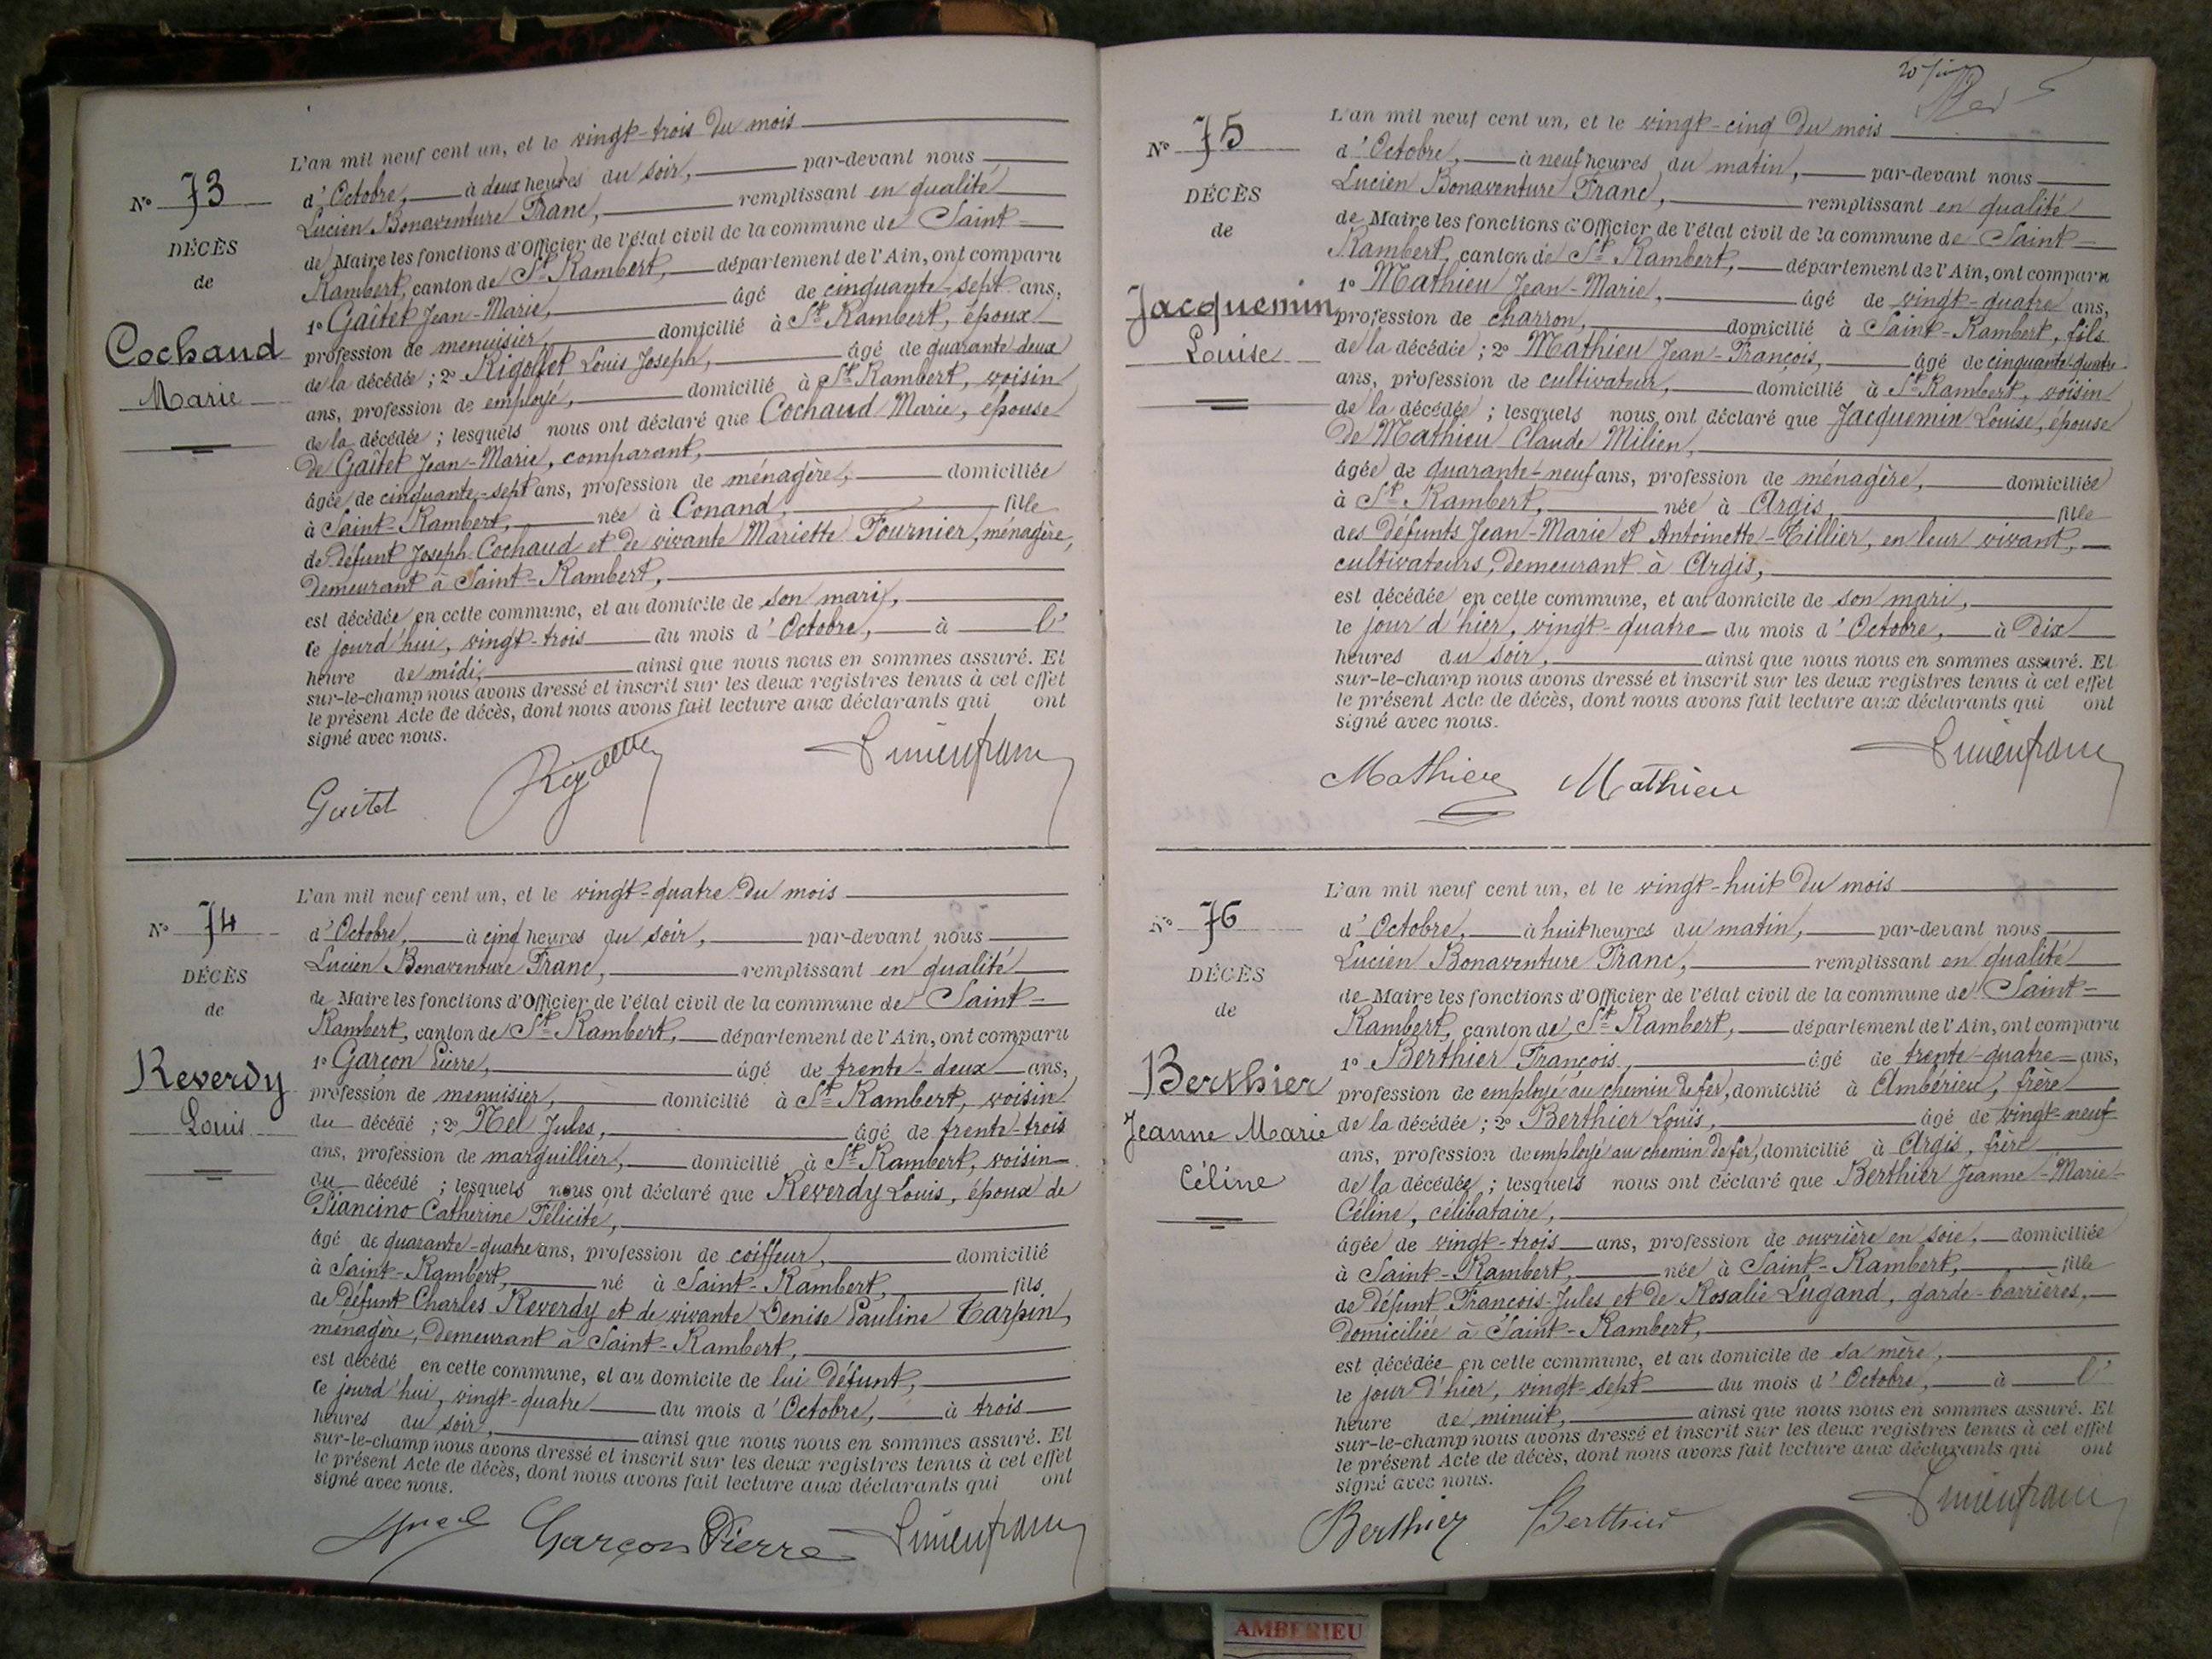 N° 73
DÉCÈS
de
Cochaud
Marie
L'an mil neuf cent un, et le vingt-trois du mois
d'Octobre, à deux heures du soir, par-devant nous
Lucien Bonaventure Franc, remplissant en qualité
de Maire les fonctions d'Officier de l'état civil de la commune de Saint-
Rambert, canton de St Rambert, département de l'Ain, ont comparu
1° Gaîtet Jean-Marie, âgé de cinquante-sept ans,
profession de menuisier, domicilié à St Rambert, époux
de la décédée ; 2° Rigollet Louis Joseph, âgé de quarante deux
ans, profession de employé, domicilié à St Rambert, voisin
de la décédée ; lesquels nous ont déclaré que Cochaud Marie, épouse
de Gaîtet Jean-Marie, comparant,
âgée de cinquante-sept ans, profession de ménagère, domiciliée
à Saint-Rambert, née à Conand, fille
de défunt Joseph Cochaud et de vivante Mariette Fournier, ménagère,
demeurant à Saint-Rambert,
est décédée en cette commune, et au domicile de son mari,
ce jourd'hui, vingt-trois du mois d'Octobre, à l'
heure de midi, ainsi que nous nous en sommes assuré. Et
sur-le-champ nous avons dressé et inscrit sur les deux registres tenus à cet effet
le présent Acte de décès, dont nous avons fait lecture aux déclarants qui ont
signé avec nous.
Gaitet Rigollet Lucien franc
N° 74
DÉCÈS
de
Reverdy
Louis
L'an mil neuf cent un, et le vingt-quatre du mois
d'Octobre, à cinq heures du soir, par-devant nous
Lucien Bonaventure Franc, remplissant en qualité
de Maire les fonctions d'Officier de l'état civil de la commune de Saint-
Rambert, canton de St Rambert, département de l'Ain, ont comparu
1° Garçon Pierre, âgé de trente-deux ans,
profession de menuisier, domicilié à St Rambert, voisin
du décédé ; 2° Nel Jules, âgé de trente-trois
ans, profession de marguillier, domicilié à St Rambert, voisin
du décédé ; lesquels nous ont déclaré que Reverdy Louis, époux de
Piancino Catherine Félicité,
âgé de quarante-quatre ans, profession de coiffeur, domicilié
à Saint-Rambert, né à Saint-Rambert, fils
de défunt Charles Reverdy et de vivante Denise Pauline Tarpin,
ménagère, demeurant à Saint-Rambert,
est décédé en cette commune, et au domicile de lui défunt,
ce jourd'hui, vingt-quatre du mois d'Octobre, à trois
heures du soir, ainsi que nous nous en sommes assuré. Et
sur-le-champ nous avons dressé et inscrit sur les deux registres tenus à cet effet
le présent Acte de décès, dont nous avons fait lecture aux déclarants qui ont
signé avec nous.
Garçon Pierre Lucien franc
N° 75
DÉCÈS
de
Jacquemin
Louise
L'an mil neuf cent un, et le vingt-cinq du mois
d'Octobre, à neuf heures du matin, par-devant nous
Lucien Bonaventure Franc, remplissant en qualité
de Maire les fonctions d'Officier de l'état civil de la commune de Saint-
Rambert, canton de St Rambert, département de l'Ain, ont comparu
1° Mathieu Jean-Marie, âgé de vingt-quatre ans,
profession de charron, domicilié à Saint-Rambert, fils
de la décédée ; 2° Mathieu Jean-François, âgé de cinquante-quatre
ans, profession de cultivateur, domicilié à St Rambert, voisin
de la décédée ; lesquels nous ont déclaré que Jacquemin Louise, épouse
de Mathieu Claude Milien,
âgée de quarante-neuf ans, profession de ménagère, domiciliée
à St Rambert, née à Argis, fille
des défunts Jean-Marie et Antoinette Tillier, en leur vivant,
cultivateurs, demeurant à Argis,
est décédée en cette commune, et au domicile de son mari,
le jour d'hier, vingt-quatre du mois d'Octobre, à dix
heures du soir, ainsi que nous nous en sommes assuré. Et
sur-le-champ nous avons dressé et inscrit sur les deux registres tenus à cet effet
le présent Acte de décès, dont nous avons fait lecture aux déclarants qui ont
signé avec nous.
Mathieu Mathieu Lucien franc
N° 76
DÉCÈS
de
Berthier
Jeanne Marie
Céline
L'an mil neuf cent un, et le vingt-huit du mois
d'Octobre, à huit heures du matin, par-devant nous
Lucien Bonaventure Franc, remplissant en qualité
de Maire les fonctions d'Officier de l'état civil de la commune de Saint-
Rambert, canton de St Rambert, département de l'Ain, ont comparu
1° Berthier François, âgé de trente-quatre ans,
profession de employé au chemin de fer, domicilié à Ambérieu, frère
de la décédée ; 2° Berthier Louis, âgé de vingt-neuf
ans, profession de employé au chemin de fer, domicilié à Argis, frère
de la décédée ; lesquels nous ont déclaré que Berthier Jeanne-Marie-
Céline, célibataire,
âgée de vingt-trois ans, profession de ouvrière en soie, domiciliée
à Saint-Rambert, née à Saint-Rambert, fille
de défunt François-Jules et de Rosalie Lugand, garde-barrières,
domiciliée à Saint-Rambert,
est décédée en cette commune, et au domicile de sa mère,
le jour d'hier, vingt-sept du mois d'Octobre, à l'
heure de minuit, ainsi que nous nous en sommes assuré. Et
sur-le-champ nous avons dressé et inscrit sur les deux registres tenus à cet effet
le présent Acte de décès, dont nous avons fait lecture aux déclarants qui ont
signé avec nous.
Berthier Berthier Lucien franc
AMBERIEU